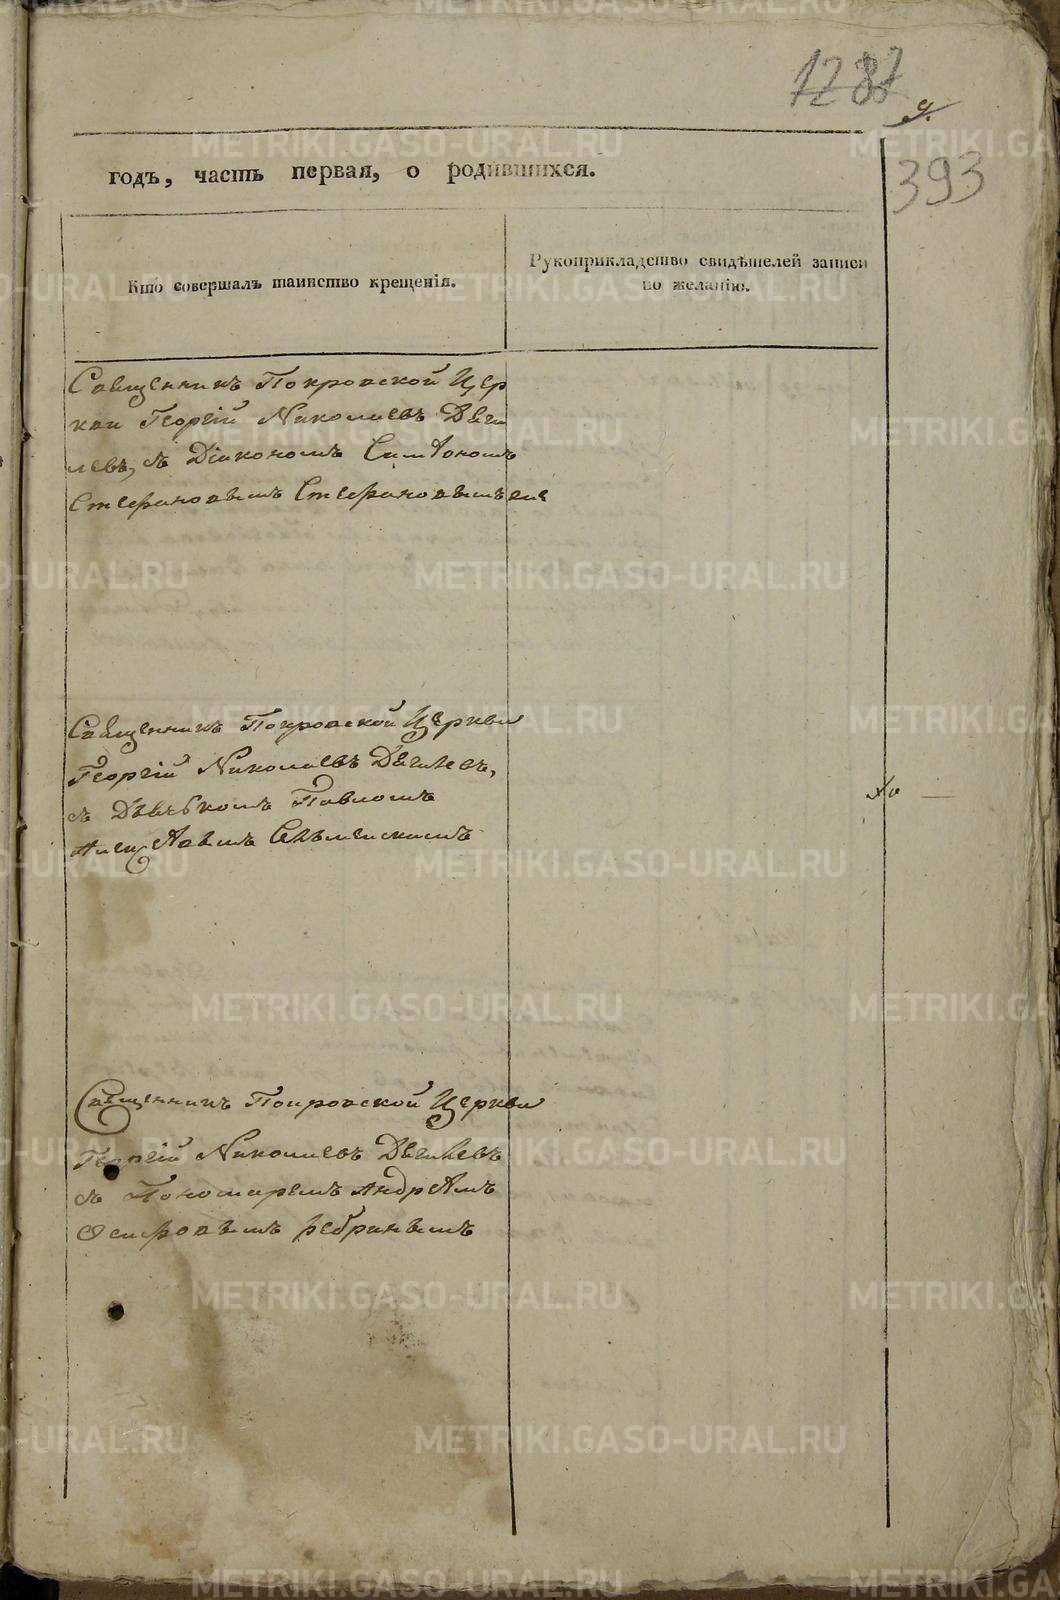 1287
9.
393
годъ, часть первая, о родившихся.
Кто совершалъ таинство крещенія.
Рукоприкладство свидѣтелей записи
по желанію.
Священникъ Покровской Цер
кви Георгій Николаевъ Дяги
левъ, съ Діакономъ Симѵономъ
Стефановымъ Стефановымъ же
Священникъ Покровской Церкви
Георгій Николаевъ Дягилевъ,
съ Дьячкомъ Павломъ
Алексѣевымъ
Священникъ Покровской Церкви
Георгій Николаевъ Дягилевъ
съ Пономаремъ Андрѣемъ
Осиповымъ Ребринымъ
METRIKI.GASO-URAL.RU